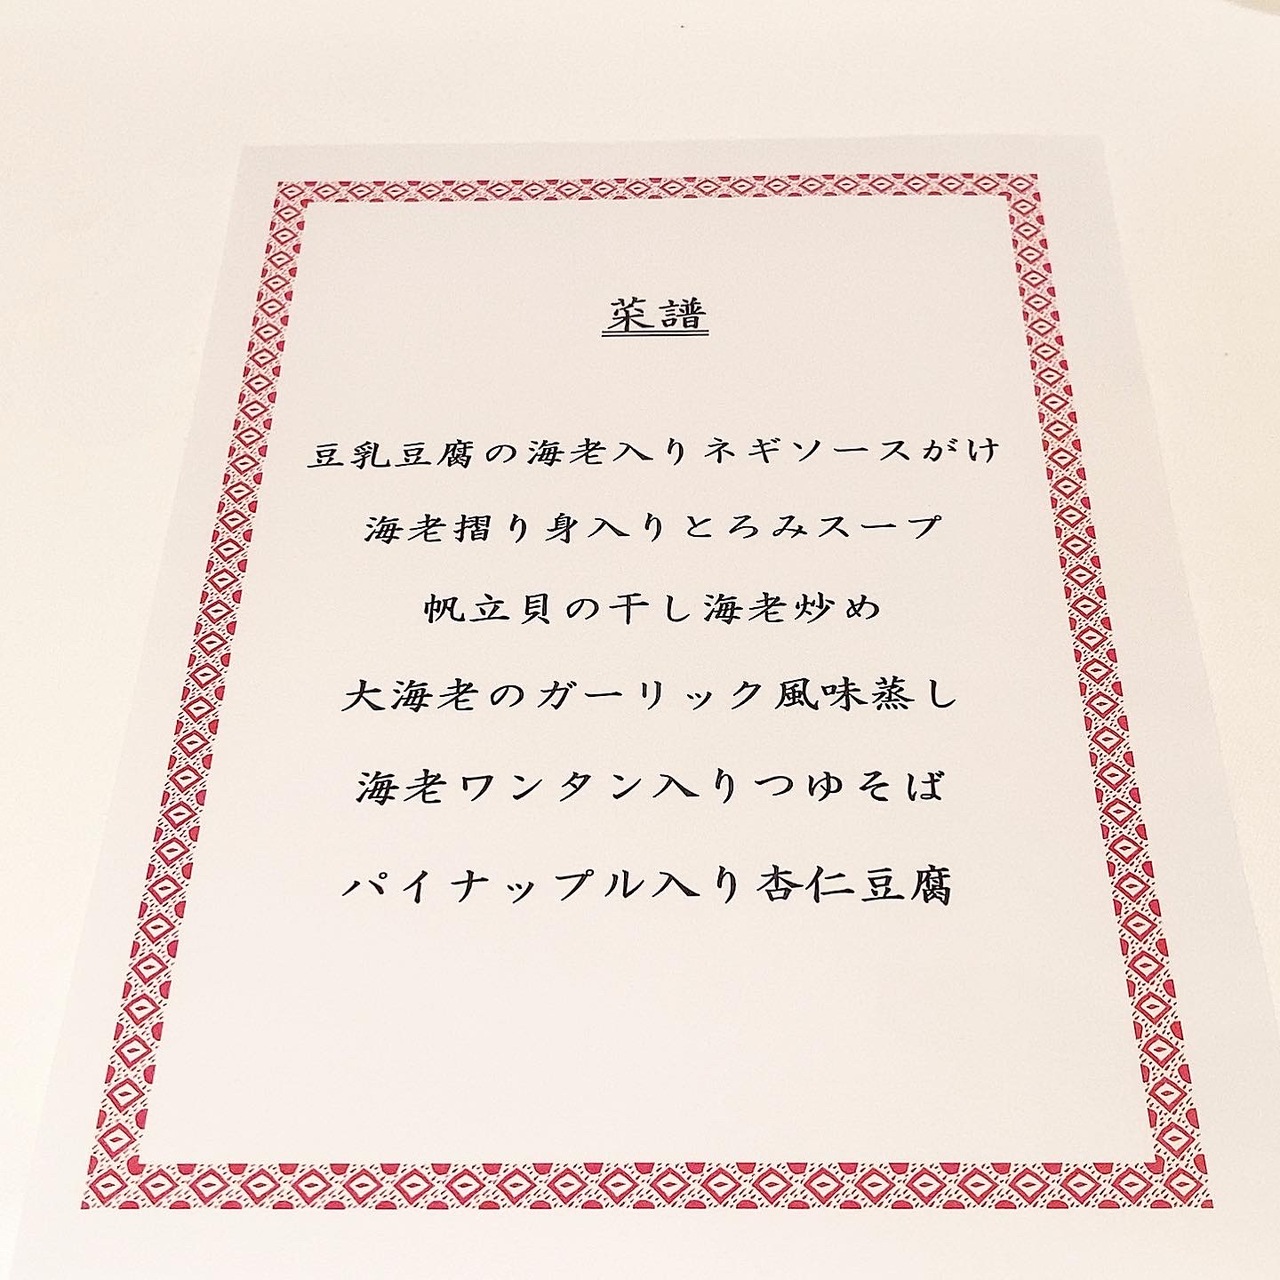 菜譜
豆乳豆腐の海老入りネギソースがけ
海老摺り身入りとろみスープ
帆立貝の干し海老炒め
大海老のガーリック風味蒸し
海老ワンタン入りつゆそば
パイナップル入り杏仁豆腐